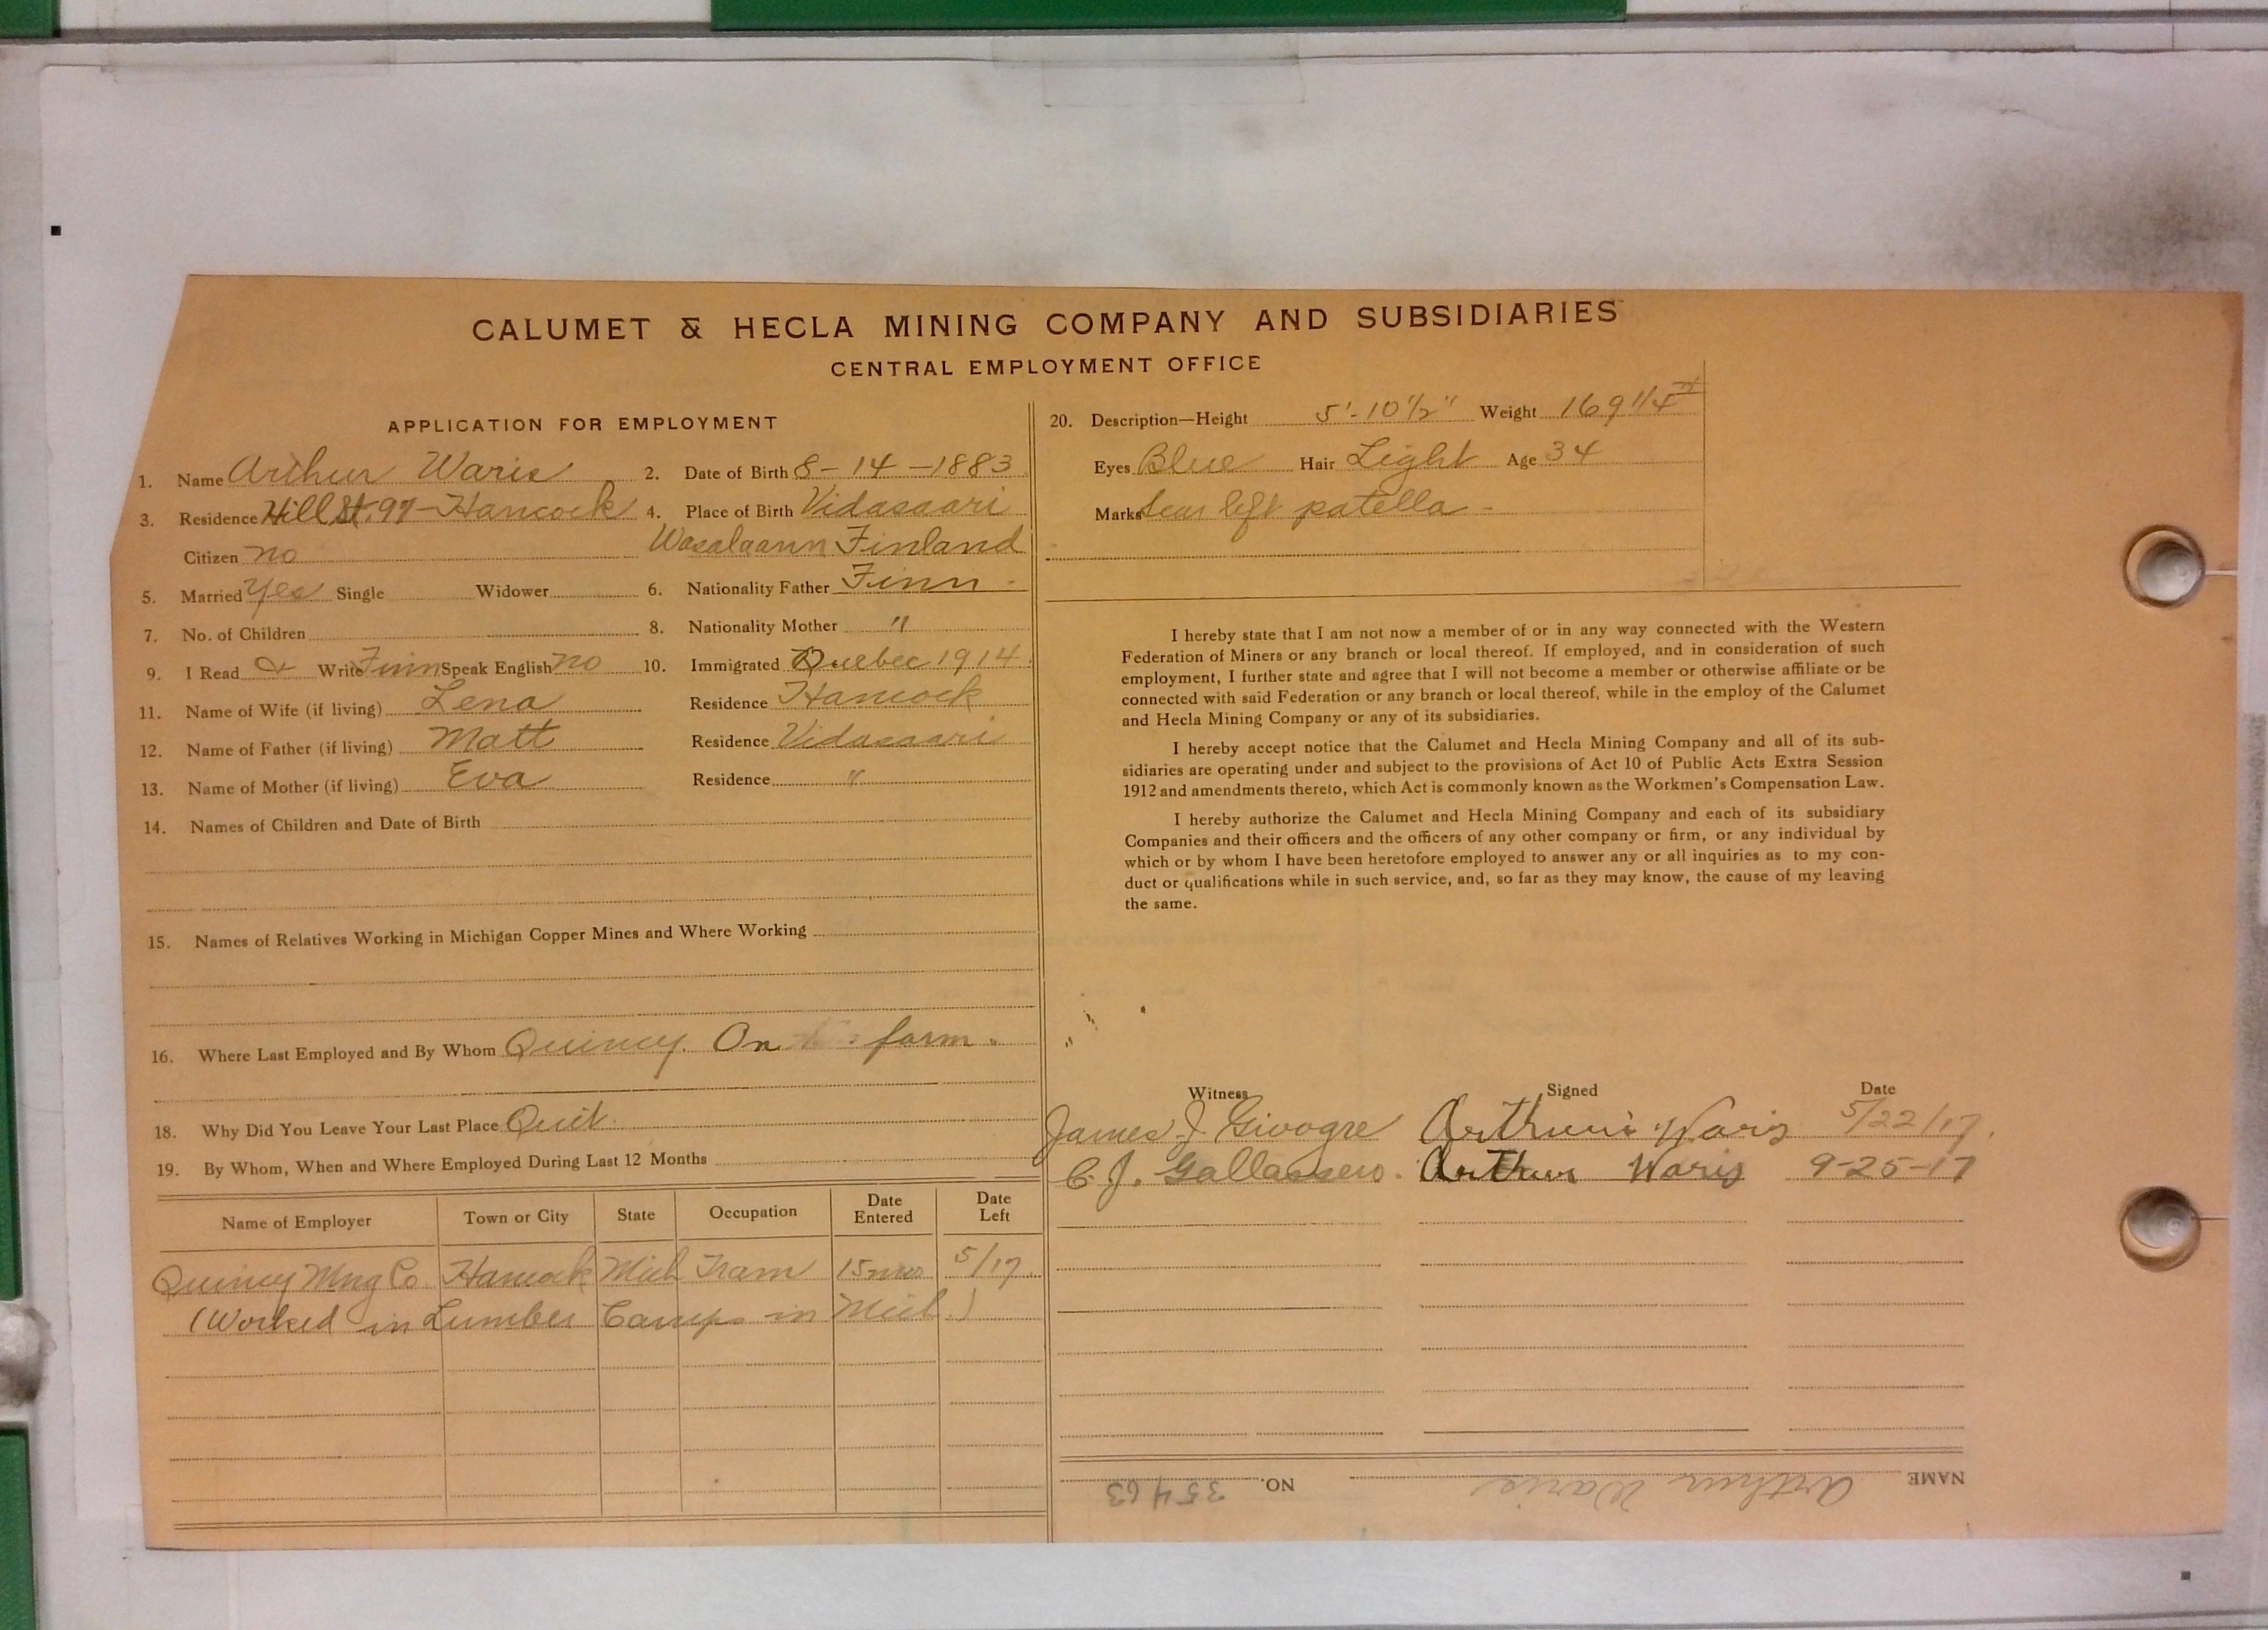 CALUMET & HECLA MINING COMPANY AND SUBSIDIARIES
CENTRAL EMPLOYMENT OFFICE
APPLICATION FOR EMPLOYMENT
1. Name Arthur Waris 2. Date of Birth 8-14-1883
3. Residence Hill St. 97-Hancock 4. Place of Birth Vidasaari
Citizen no Wasalaann Finland
5. Married Yes Single Widower 6. Nationality Father Finn
7. No. of Children 8. Nationality Mother "
9. I Read & Write Finn Speak English no 10. Immigrated Quebec 1914
11. Name of Wife (if living) Lena Residence Hancock
12. Name of Father (if living) Matt Residence Vidasaari
13. Name of Mother (if living) Eva Residence "
14. Names of Children and Date of Birth
15. Names of Relatives Working in Michigan Copper Mines and Where Working
16. Where Last Employed and By Whom Quincy. On farm.
18. Why Did You Leave Your Last Place Quit.
19. By Whom, When and Where Employed During Last 12 Months
Name of Employer Town or City State Occupation Date Entered Date Left
Quincy Mng Co. Hancock Mich Tram 15 mos 5/17
(Worked in Lumber Camps in Mich.)
20. Description—Height 5'-10 1/2" Weight 169 1/4
Eyes Blue Hair Light Age 34
Marks Scar left patella -
I hereby state that I am not now a member of or in any way connected with the Western
Federation of Miners or any branch or local thereof. If employed, and in consideration of such
employment, I further state and agree that I will not become a member or otherwise affiliate or be
connected with said Federation or any branch or local thereof, while in the employ of the Calumet
and Hecla Mining Company or any of its subsidiaries.
I hereby accept notice that the Calumet and Hecla Mining Company and all of its sub-
sidiaries are operating under and subject to the provisions of Act 10 of Public Acts Extra Session
1912 and amendments thereto, which Act is commonly known as the Workmen's Compensation Law.
I hereby authorize the Calumet and Hecla Mining Company and each of its subsidiary
Companies and their officers and the officers of any other company or firm, or any individual by
which or by whom I have been heretofore employed to answer any or all inquiries as to my con-
duct or qualifications while in such service, and, so far as they may know, the cause of my leaving
the same.
Witness Signed Date
James J. Givogre Arthur Waris 5/22/17.
C. J. Gallassero. Arthur Waris 9-25-17
NAME Arthur Waris NO. 35463